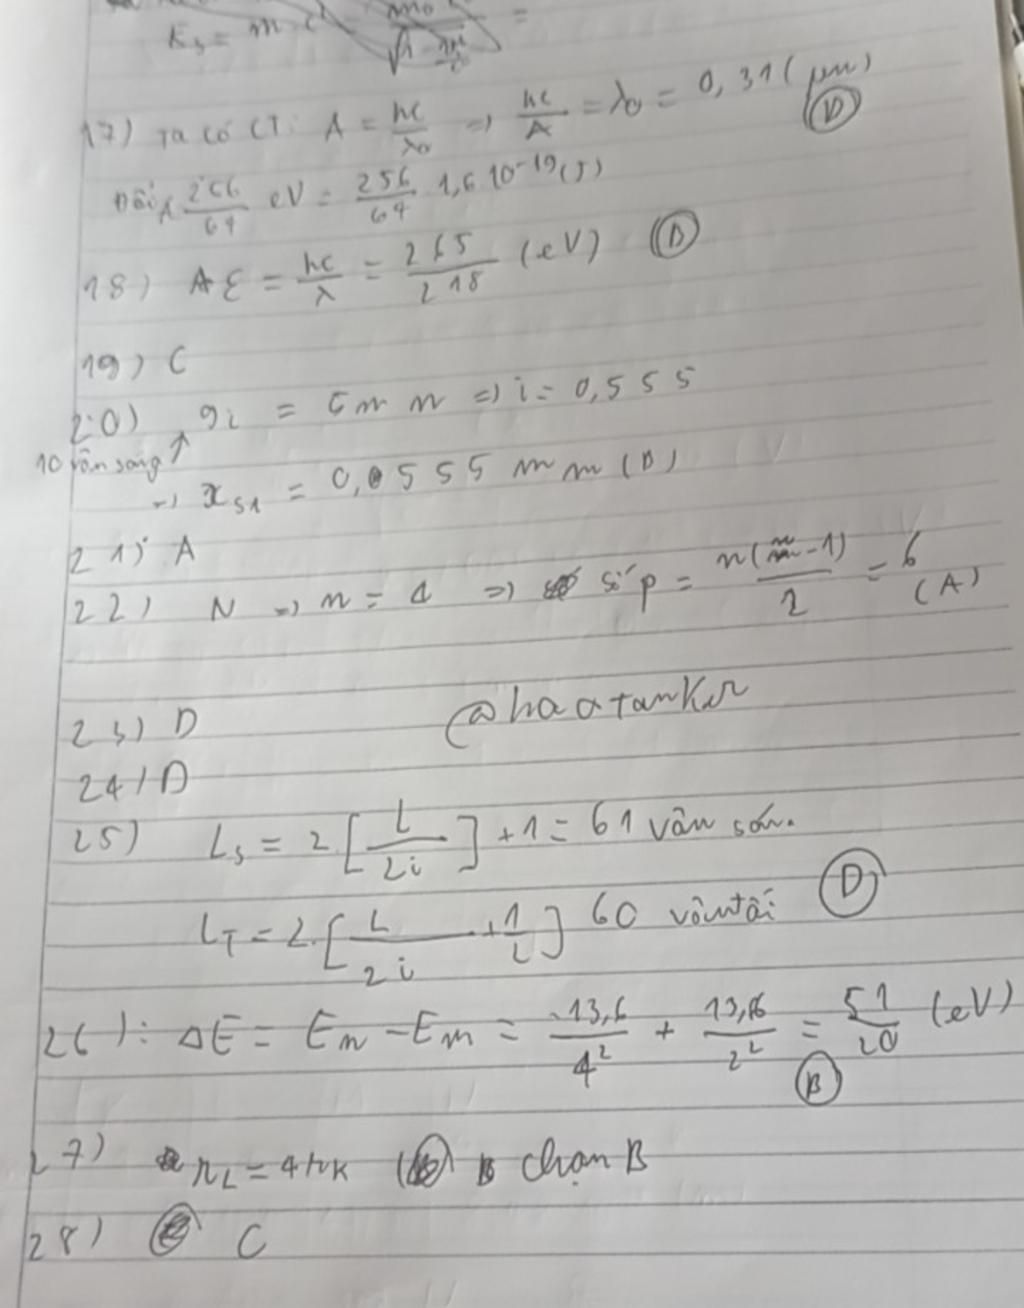 K₃ = m
17) Ta có CT: A = hc/λ₀ => hc/A = λ₀ = 0,31 (μm) (D)
Đổi 256/64 eV = 256/64 . 1,6 10⁻¹⁹ (J)
18) Aε = hc/λ = 265/218 (eV) (D)
19) C
20) 9i = 5mm => i = 0,555
10 vân sáng ↑
=> x_S1 = 0,0555 mm (D)
21) A
22) N => n = 4 => số p = n(n-1)/2 = 6 (A)
23) D
@haatanker
24) D
25) L_s = 2.[L/2i] + 1 = 61 vân sán.
L_T = 2.[L/2i + 1/2] 60 vân tối (D)
26): ΔE = En - Em = -13,6/4² + 13,6/2² = 51/20 (eV)
(B)
27) r_L = 4r_K B chọn B
28) C